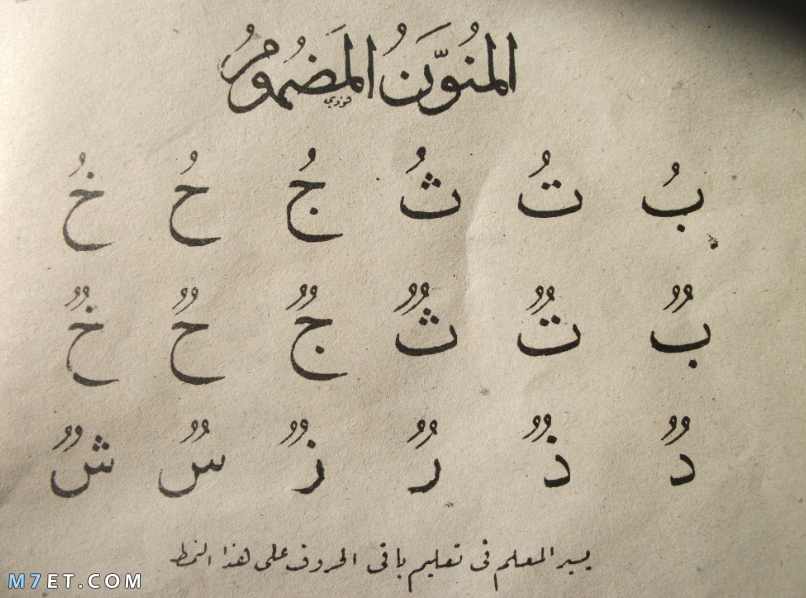 المُنُوَّنُ المَضمُومُ
بُ تُ ثُ جُ حُ خُ
بٌ تٌ ثٌ جٌ حٌ خٌ
دٌ ذٌ رٌ زٌ سٌ شٌ
يسير المعلم فى تعليم باقى الحروف على هذا النمط
M7ET.COM